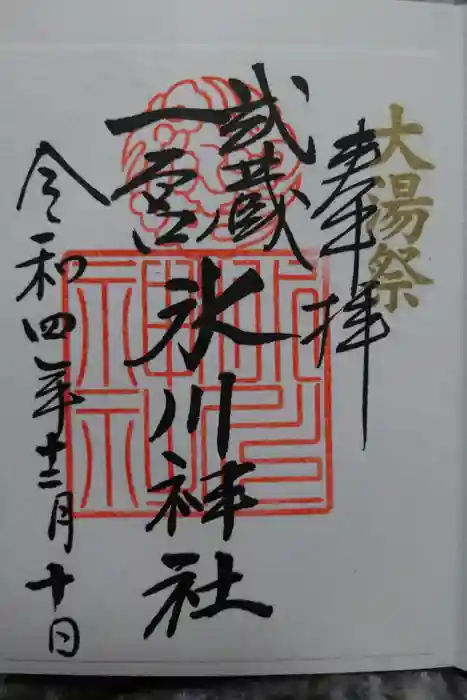 大湯祭
奉拝
武蔵
一宮
氷川神社
令和四年十二月十日
氷川神社